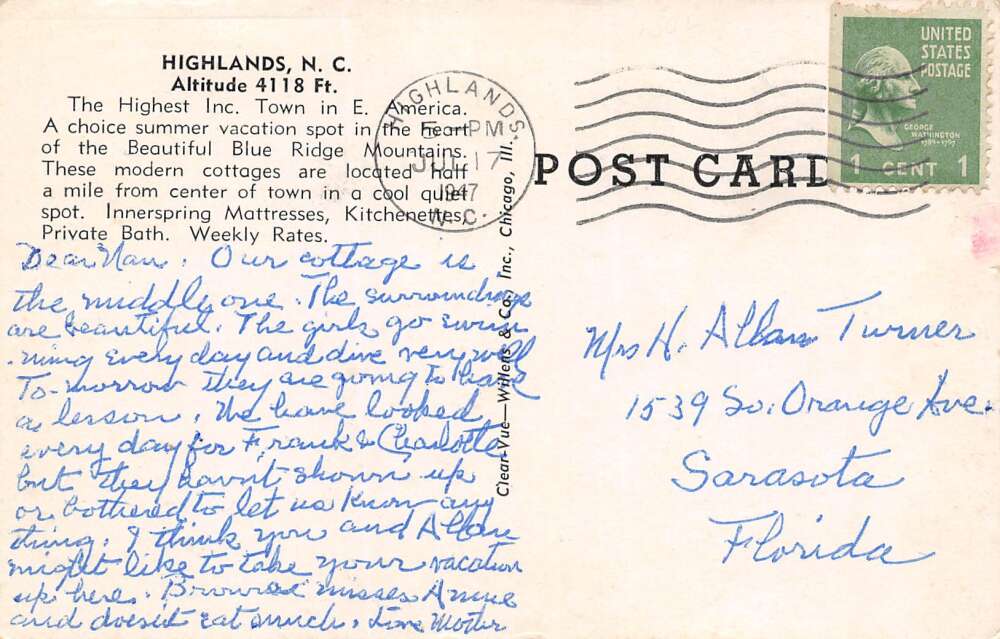 HIGHLANDS, N. C.
Altitude 4118 Ft.
The Highest Inc. Town in E. America.
A choice summer vacation spot in the heart
of the Beautiful Blue Ridge Mountains.
These modern cottages are located half
a mile from center of town in a cool quiet
spot. Innerspring Mattresses, Kitchenettes,
Private Bath. Weekly Rates.
Dear Nan: Our cottage is
the middle one. The surroundings
are beautiful. The girls go swim
-ming every day and dive very well
To-morrow they are going to have
a lesson. We have looked
every day for Frank & Charlotte
but they havn't shown up
or bothered to let us know any
thing. I think you and Allan
might like to take your vacation
up here. misses Anne
and doesn't eat much. Love Mother
HIGHLANDS.
5 - PM
JUL 17
1947
N.C.
Clear-Vue—Willens & Co., Inc., Chicago, Ill.
POST CARD
UNITED
STATES
POSTAGE
GEORGE
WASHINGTON
1789-1797
1 CENT 1
Mrs H. Allan Turner
1539 So. Orange Ave.
Sarasota
Florida